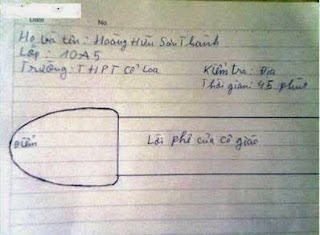 No
Họ và tên: Hoàng Hữu Sơn Thành
Lớp: 10A5
Trường: THPT Cổ Loa
Kiểm tra: Địa
Thời gian: 45 phút
Điểm
Lời phê của cô giáo